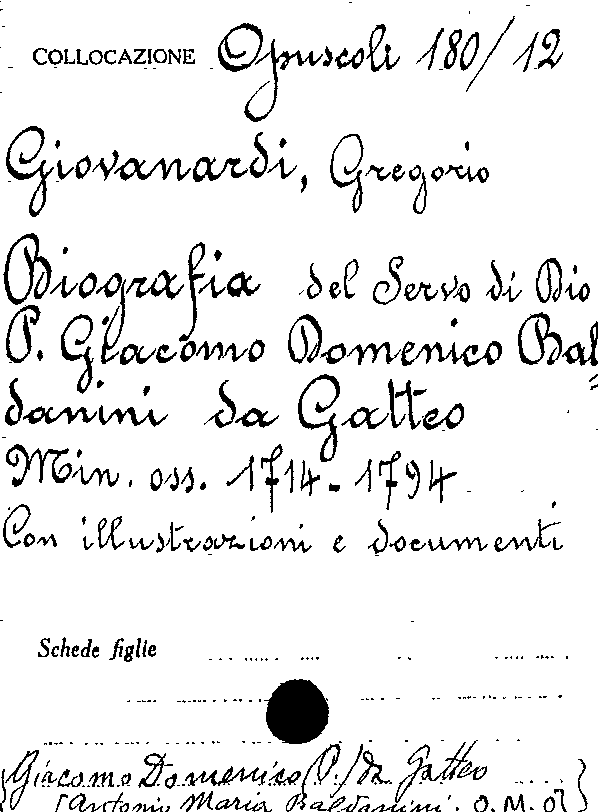 COLLOCAZIONE Opuscoli 180/12
Giovanardi, Gregorio
Biografia del Servo di Dio
P. Giacomo Domenico Bal=
danini da Gatteo
Min. oss. 1714-1794
Con illustrazioni e documenti
Schede figlie
Giacomo Domenico (P.) da Gatteo
[Antonio Maria Baldanini. O.M.O.]